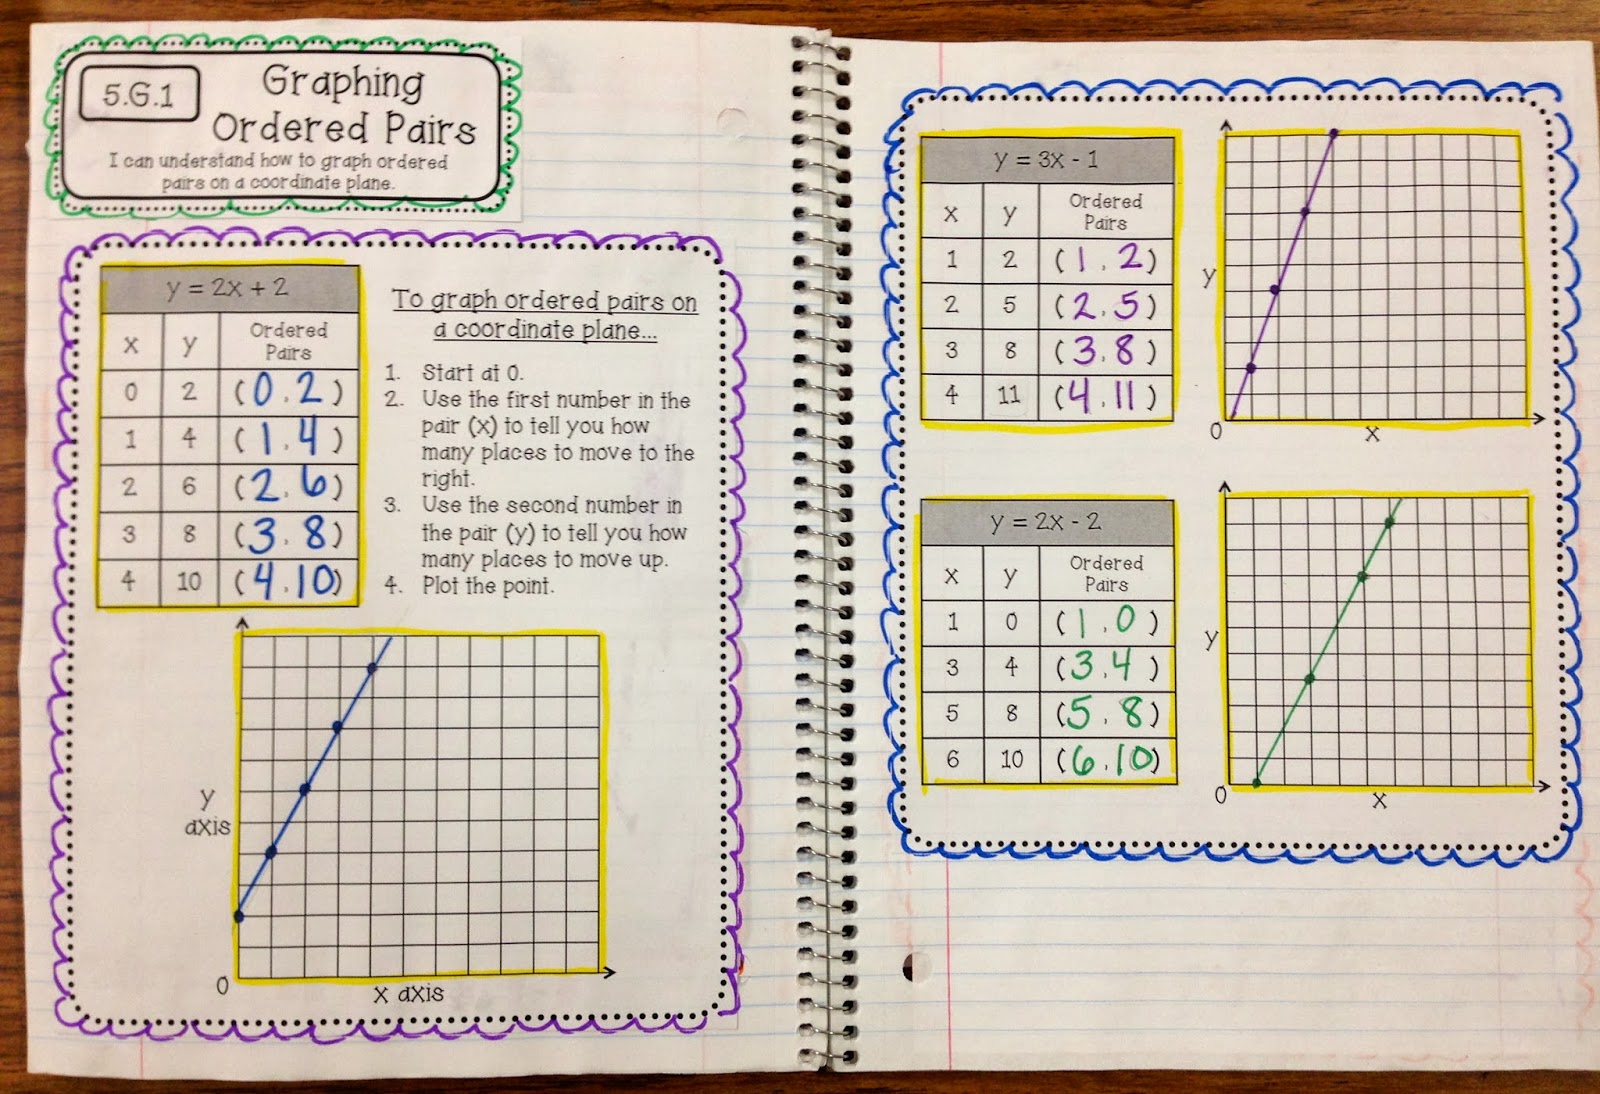 5.G.1
Graphing
Ordered Pairs
I can understand how to graph ordered
pairs on a coordinate plane.
y = 2x + 2
x y Ordered Pairs
0 2 (0, 2)
1 4 (1, 4)
2 6 (2, 6)
3 8 (3, 8)
4 10 (4, 10)
To graph ordered pairs on
a coordinate plane...
1. Start at 0.
2. Use the first number in the
pair (x) to tell you how
many places to move to the
right.
3. Use the second number in
the pair (y) to tell you how
many places to move up.
4. Plot the point.
y
axis
0
x axis
y = 3x - 1
x y Ordered Pairs
1 2 (1, 2)
2 5 (2, 5)
3 8 (3, 8)
4 11 (4, 11)
y
0
x
y = 2x - 2
x y Ordered Pairs
1 0 (1, 0)
3 4 (3, 4)
5 8 (5, 8)
6 10 (6, 10)
y
0
x